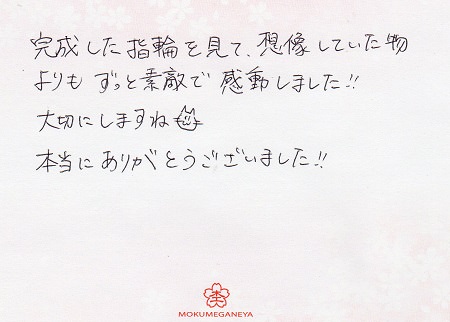 完成した指輪を見て、想像していた物
よりも ずっと素敵で 感動しました!!
大切にしますね
本当に ありがとうございました!!
MOKUMEGANEYA